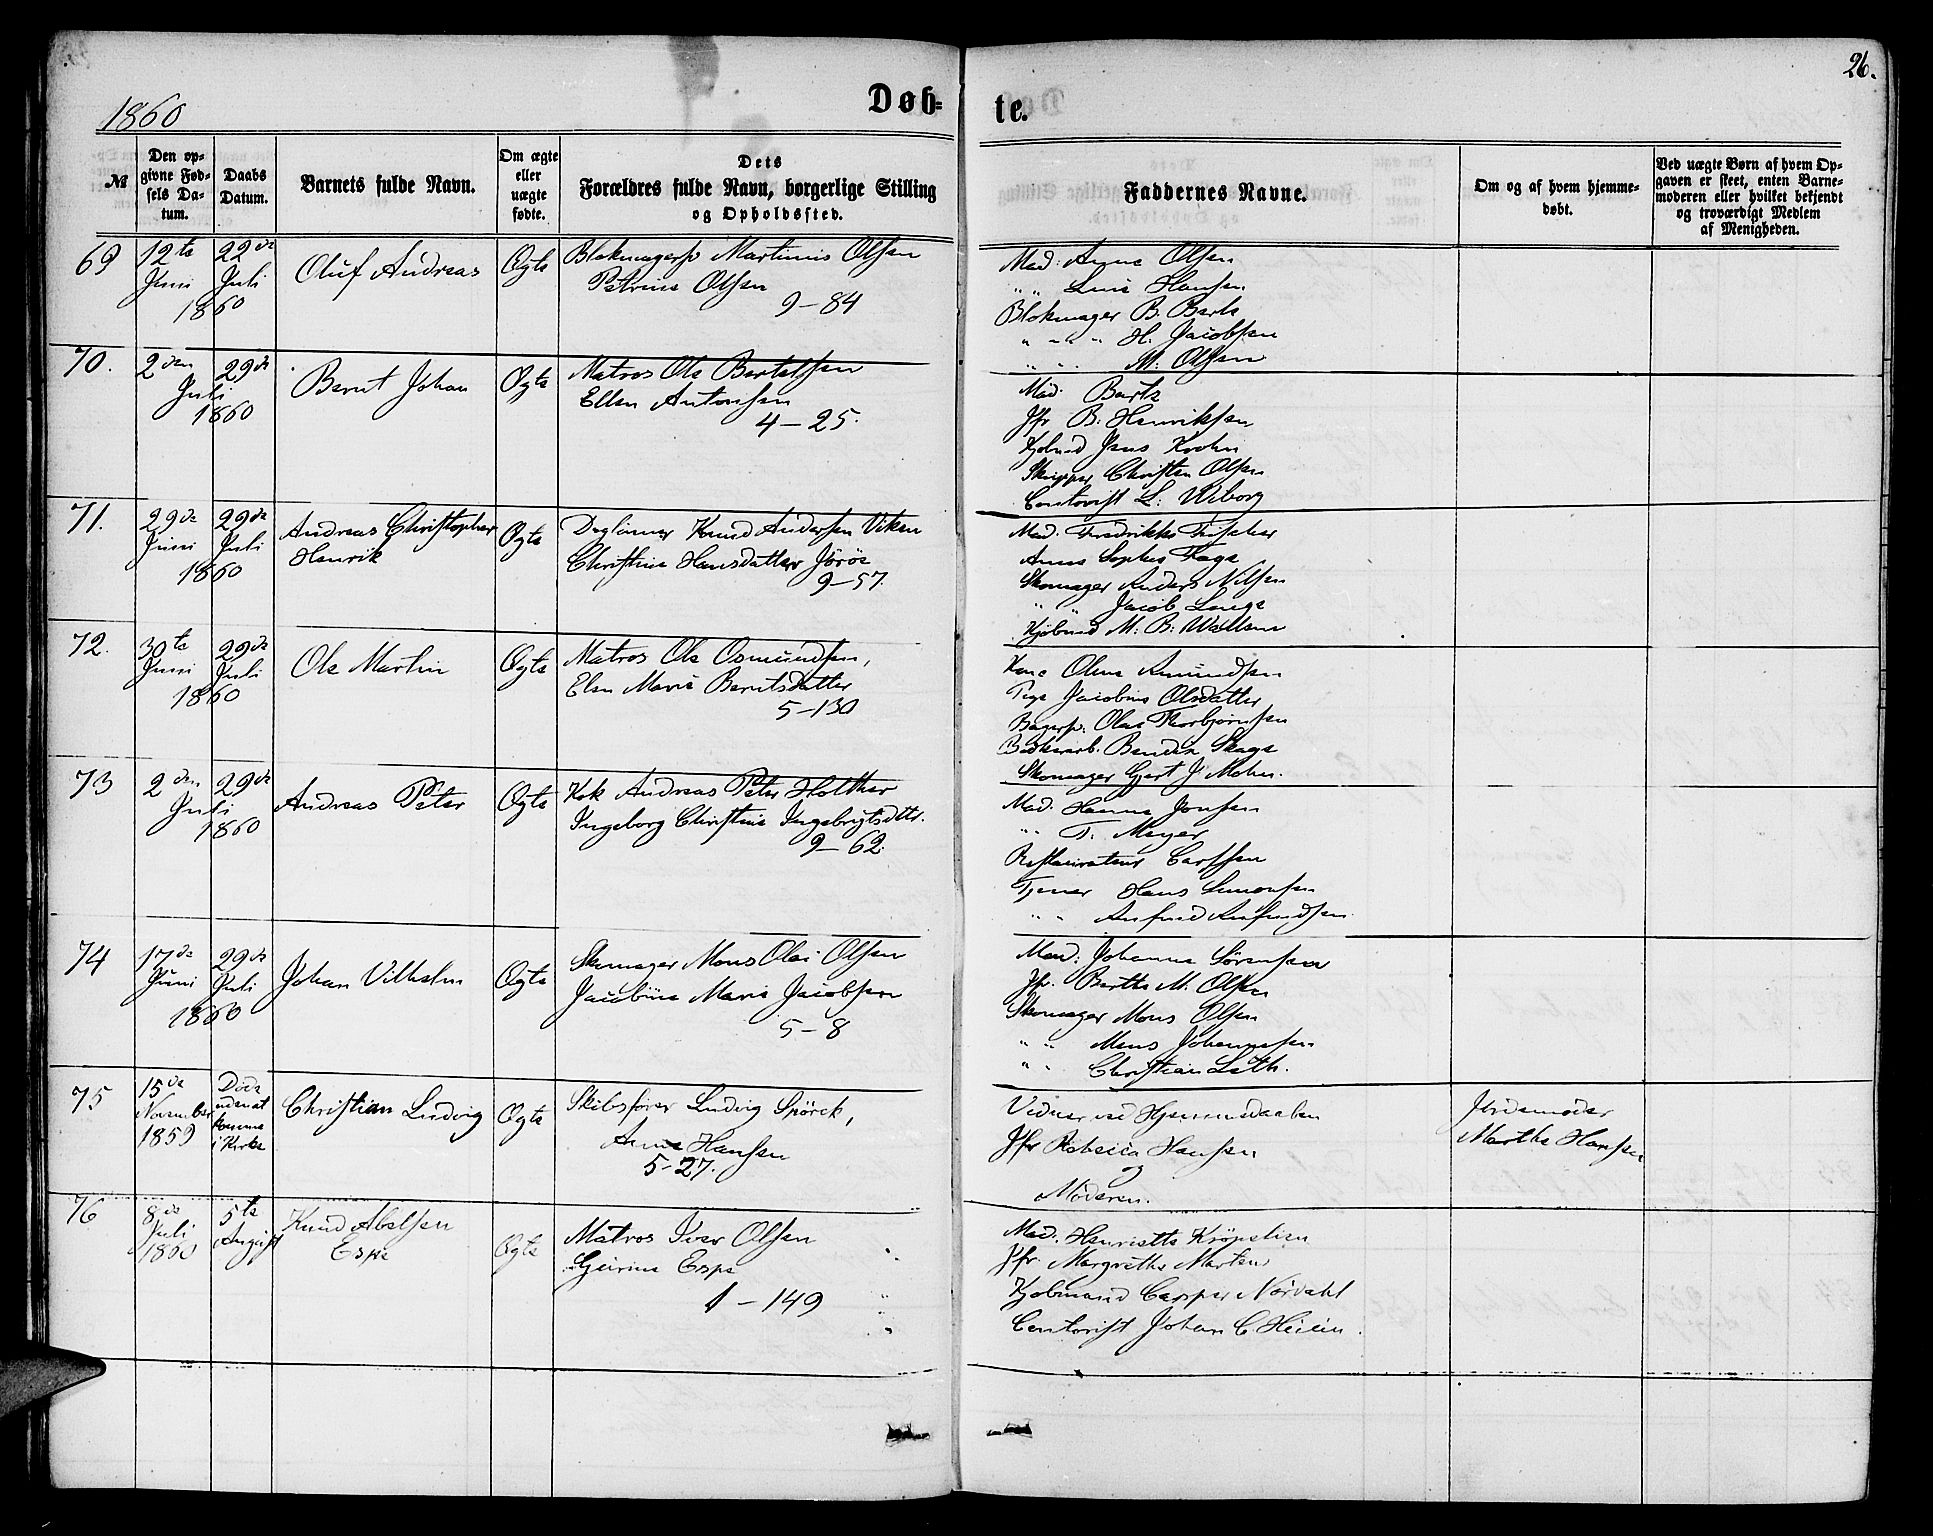 26.
1860
Døb-
te.
№
Den op-
givne Fød-
sels Da-
tum.
Daabs
Datum.
Barnets fulde Navn.
Om ægte
eller
uægte
fødte.
Dets
Forældres fulde Navn, borgerlige Stilling
og Opholdssted.
Faddernes Navne.
Om og af hvem hjemme-
døbt.
Ved uægte Børn af hvem Op-
gaven er skeet, enten Barne-
moderen eller hvilket bekjendt
og troværdigt Medlem
af Menigheden.
69
12te
Juni
22de
Juli
1860
Oluf Andreas
Ægte
Blokmagersv Martinus Olsen
Petrine Olsen
9-84
Mad: Anna Olsen
" " Lina Hansen
Blokmager B. Bartz
" " " " H. Jacobsen
" " " M. Olsen
70.
2den
Juli
29de
1860
Bernt Johan
Ægte
Matros Ole Bertelsen
Ellen Antonsen
4-25.
Mad: Bartz
Jfr B. Henriksen
Kjøbmd Jens
Skipper Christen Olsen
Contorist L. Wiborg
71.
29de
Juni
29de
Juli
1860
Andreas Christopher
Henrik
Ægte
Daglønner Knud Andersen Viken
Christine Hansdatter
9-57
Mad. Fredrikke Fischer
Anna Sophie
Skomager Anders Nilsen
" " Jacob Lange
Kjøbmd M: B: Wallem
72.
30te
Juni
29de
Juli
1860
Ole Martin
Ægte
Matros Ole Osmundsen,
Elen Marie Berntsdatter
5-130
Kone Olena Amundsen
Pige Jacobine Olsdatter
Bagersv. Olai Thorbjørnsen
Bødkerarb. Bendix Skage
Skomager Gjert J Mohn.
73
2den
Juli
29de
1860
Andreas Peter
Ægte
Kok Andreas Peter Holther
Ingeborg Christine Ingebrigtsdtr.
9-62.
Mad. Hanna Jonsen
" " T. Meyer
Restaurateur Carlsen
Tjener Hans Simonsen
" " Anfind Anfindsen
74
17de
Juni
29de
Juli
1860
Johan Vilhelm
Ægte
Skomager Mons Olai Olsen
Jacobine Marie Jacobsen
5-8
Mad: Johanna Sørensen
Jfr. Berthe M. Olsen
Skomager Mons Olsen
" " Mons Johannesen
" " Christian Leth.
75
15de
November
1859
Døde
uden at
komme
i Kirke
Christian Ludvig
Ægte
Skibsfører Ludvig Spörck,
Anna Hansen
5-27.
Vidner ved Hjemmedaaben
Jfr Rebecca Hansen
og
Moderen.
Jordemoder
Marthe Hansen
76
8de
Juli
1860
5te
August
Knud Abelsen
Espe
Ægte
Matros Iver Olsen
Guirine Espe
1-149
Mad. Henriette Krøpelien
Jfr. Margrethe Martens
Kjøbmand Casper Nordahl
Contorist Johan C